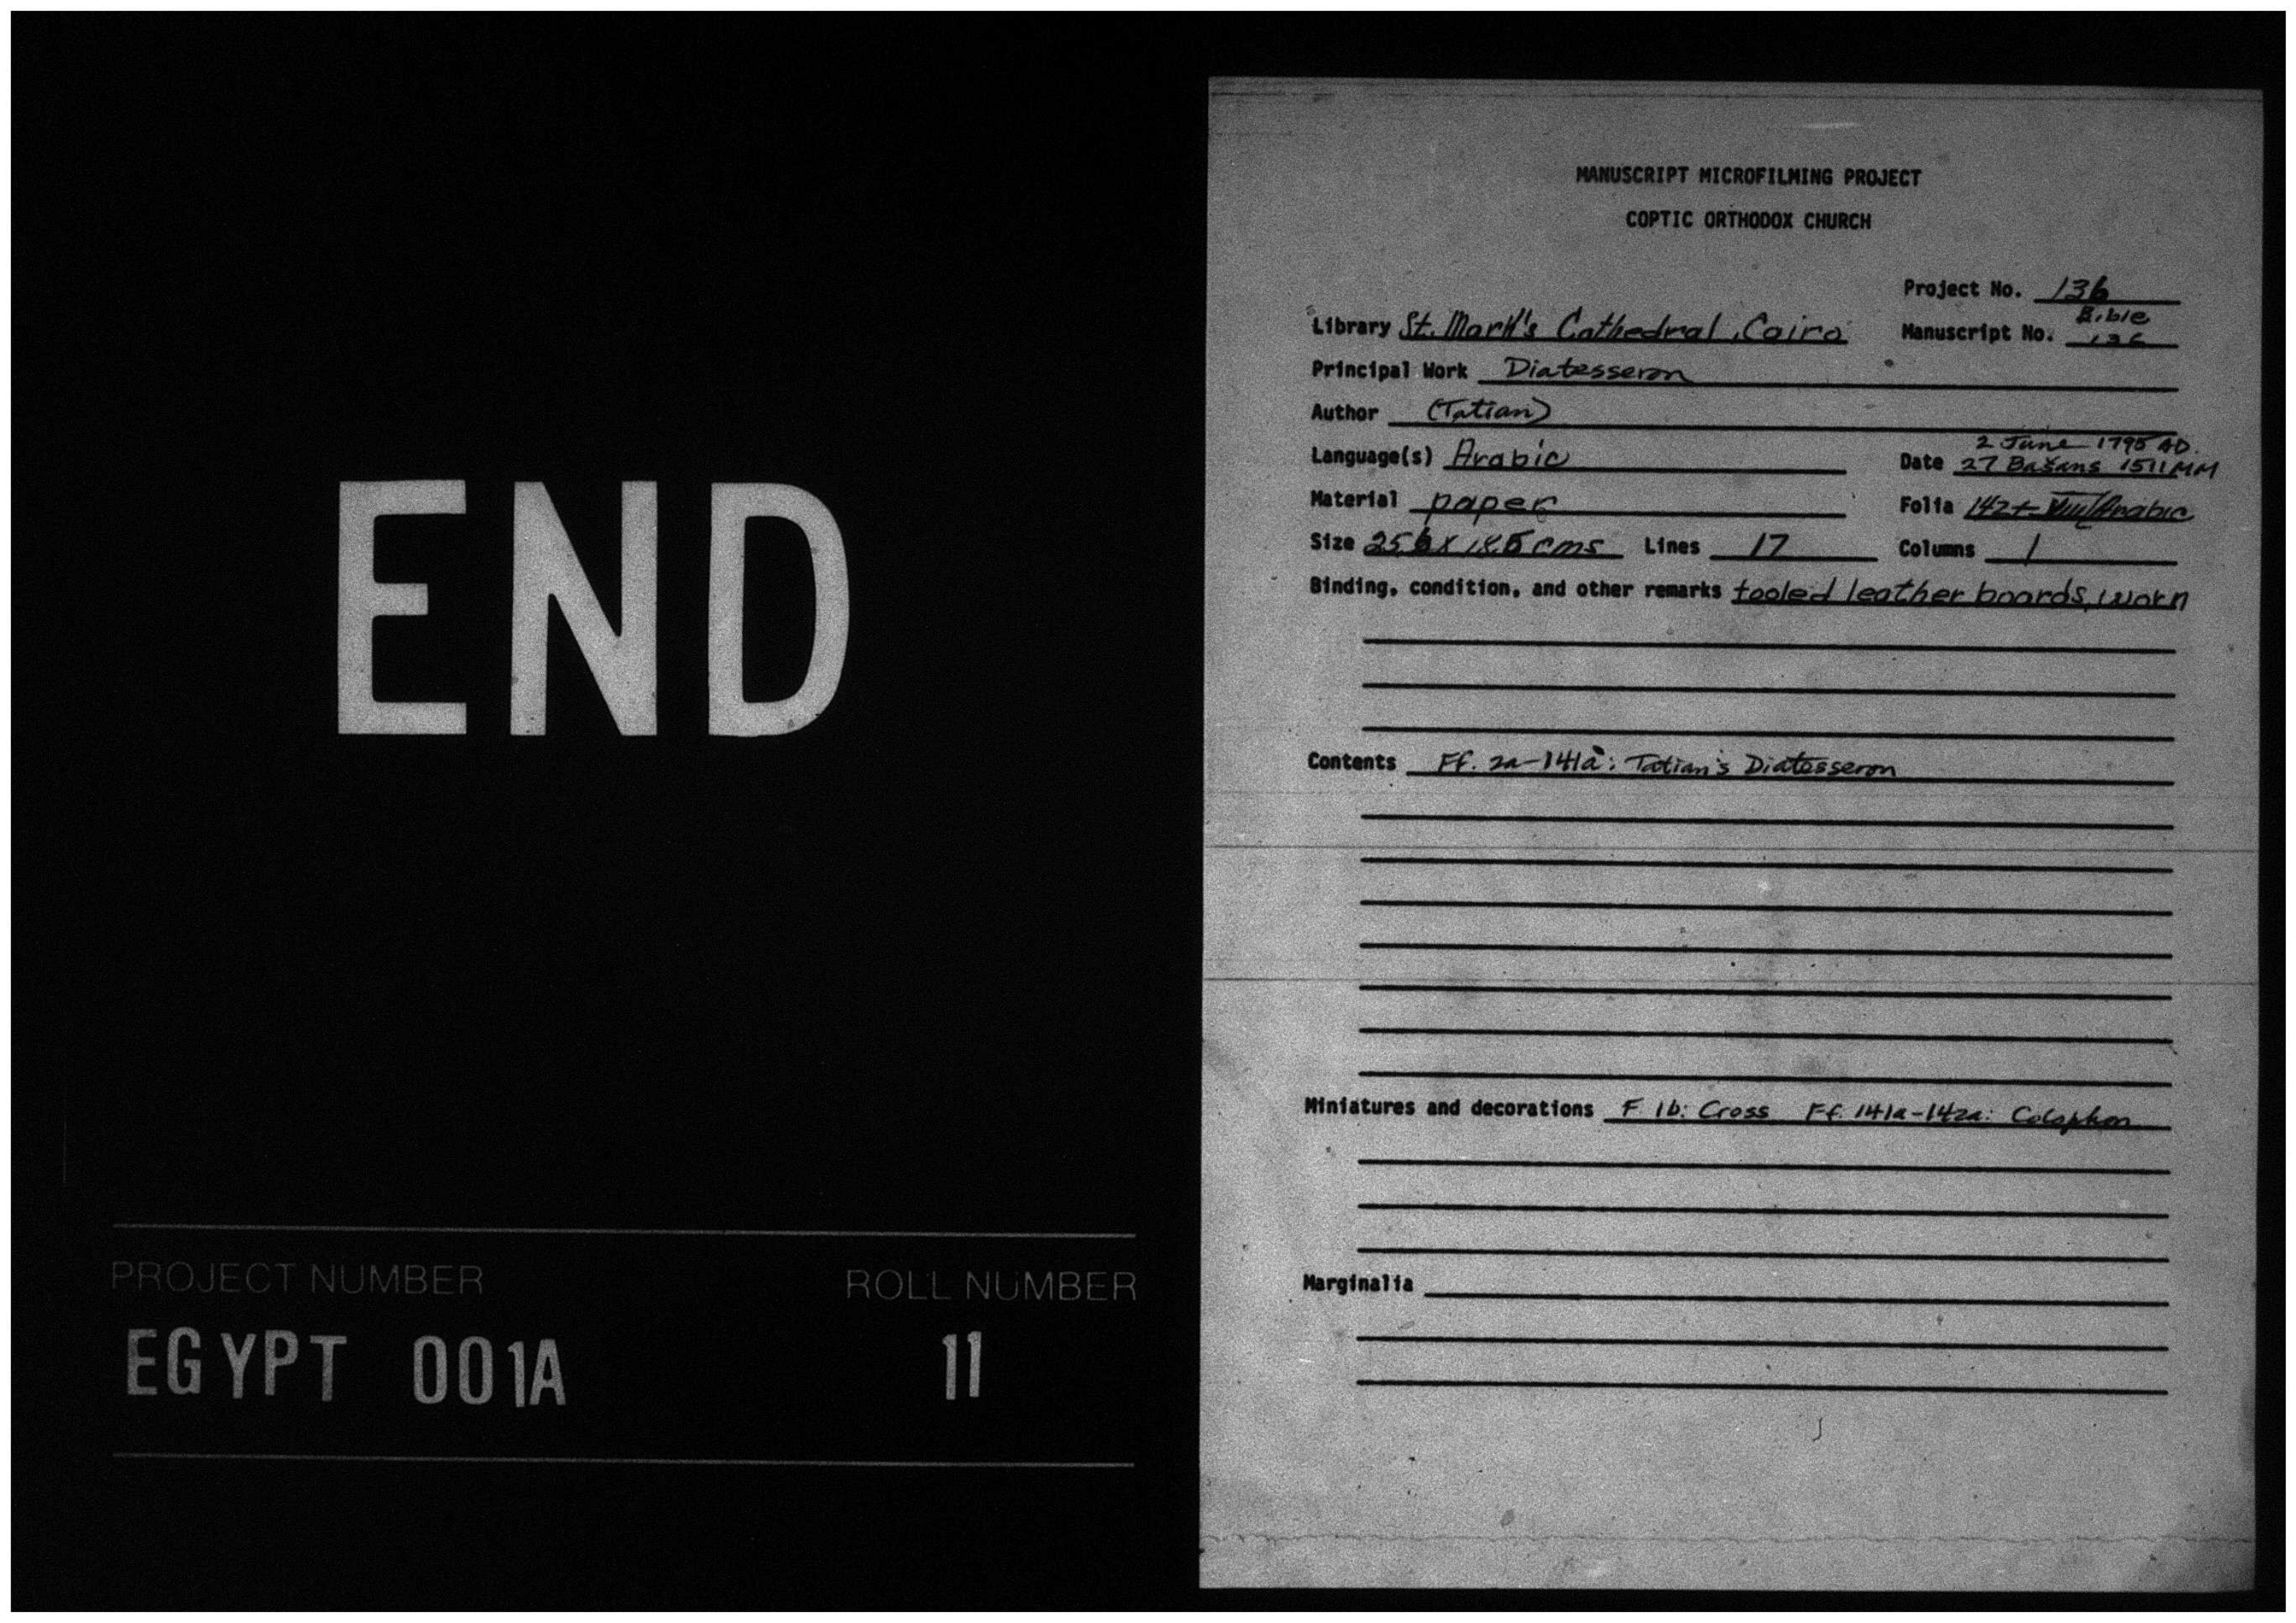 END
PROJECT NUMBER
ROLL NUMBER
EGYPT 001A
11
MANUSCRIPT MICROFILMING PROJECT
COPTIC ORTHODOX CHURCH
Project No. 136
Library St. Mark's Cathedral, Cairo
Manuscript No. Bible
Principal Work Diatesseron
Author (Tatian)
Language(s) Arabic
Date 2 June 1795 AD.
27 Bašans 1511 MM
Material paper
Folia 142+
Size 25.6 x 18.5 cms Lines 17 Columns 1
Binding, condition, and other remarks tooled leather boards, worn
Contents Ff. 2a-141a: Tatian's Diatesseron
Miniatures and decorations F. 1b: Cross Ff. 141a-142a: Colophon
Marginalia